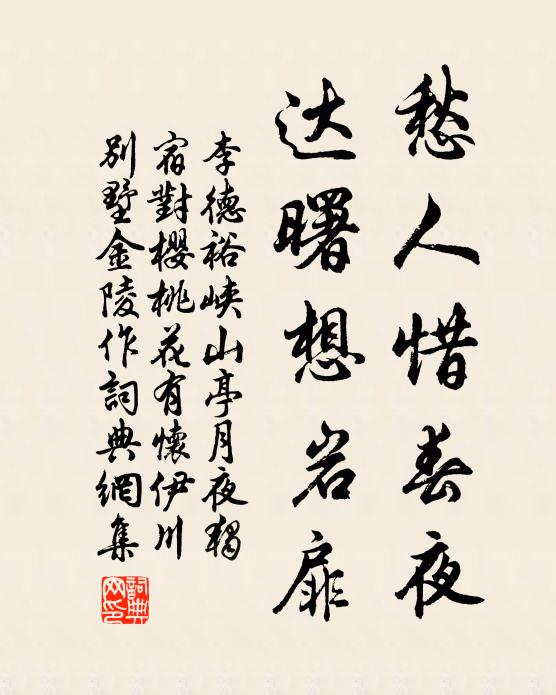 愁人惜春夜
达曙想岩扉
李德裕峡山亭月夜独
宿對櫻桃花有懷伊川
别墅金陵作詞典網集
詞典网印